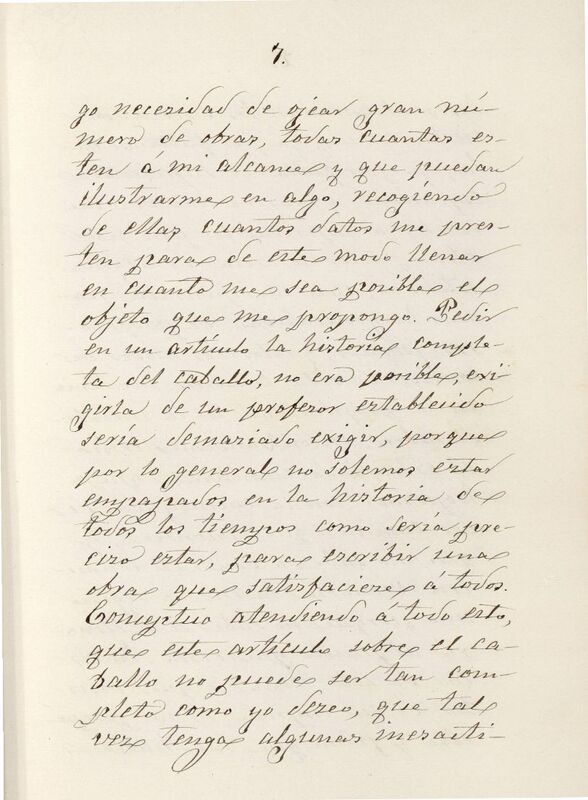 7.
go necesidad de ojear gran nú-
mero de obras, todas cuantas es-
ten á mi alcance y que puedan
ilustrarme en algo, recogiendo
de ellas cuantos datos me pres-
ten para de este modo llenar
en cuanto me sea posible el
objeto que me propongo. Pedir
en un artículo la historia comple-
ta del caballo, no era posible, exi-
girla de un profesor establecido
sería demasiado exigir, porque
por lo general no solemos estar
empapados en la historia de
todos los tiempos como sería pre-
ciso estar, para escribir una
obra que satisfaciese á todos.
Conceptuo atendiendo á todo esto,
que este artículo sobre el ca-
ballo no puede ser tan com-
pleto como yo deseo, que tal
vez tenga algunas inesacti-